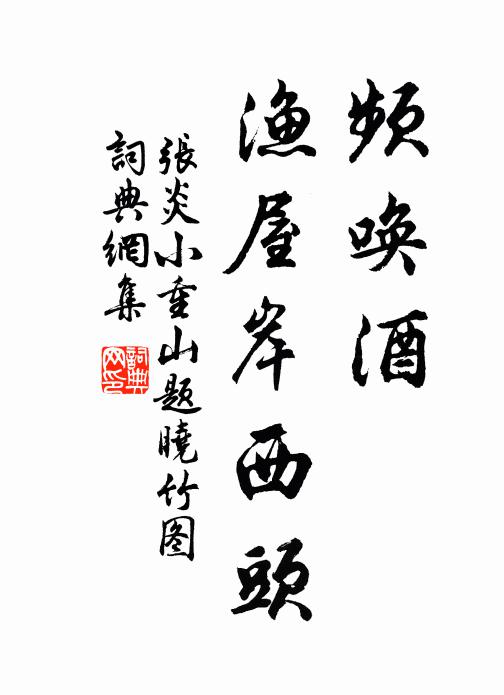 頻喚酒
漁屋岸西頭
張炎小重山題曉竹图
詞典網集
詞典網印